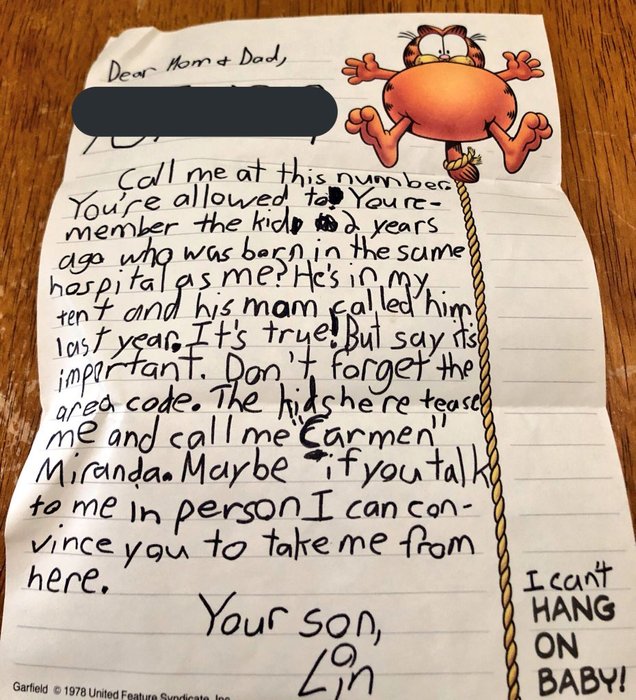 Dear Mom & Dad,
Call me at this number
You're allowed to. You re-
member the kid 2 years
ago who was born in the same
hospital as me? He's in my
tent and his mom called him
last year. It's true! But say it's
important. Don't forget the
area code. The kids here tease
me and call me "Carmen"
Miranda. Maybe if you talk
to me in person I can con-
vince you to take me from
here.
Your son,
Lin
I can't
HANG
ON
BABY!
Garfield © 1978 United Feature Syndicate, Inc.